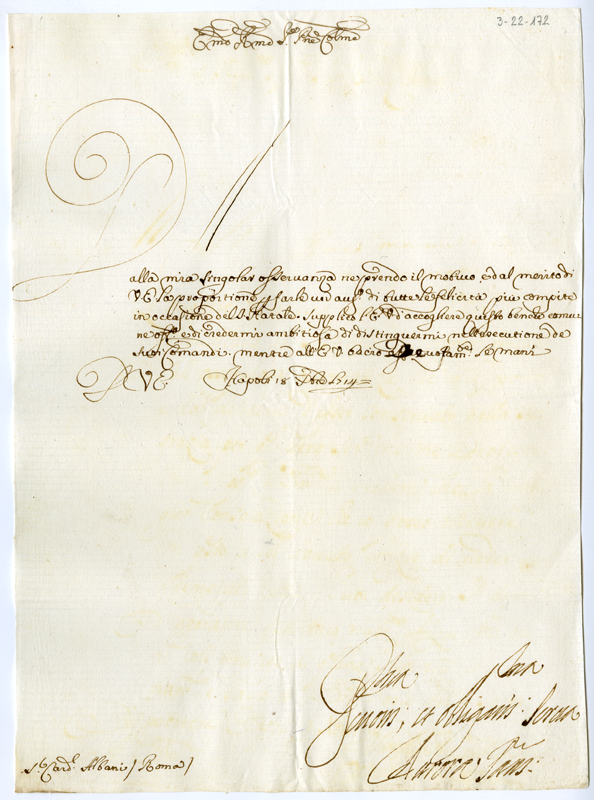 3-22-172
Emo e Rmo Sre Pne Colmo
Dalla mia singolar osservanza ne prendo il motivo, e dal merito di
V.E. la proportione p farle un aug. di tutte le felicità più compite
in occasione dell S. Natale. Supplico l'E.V. d'accogliere questo benche comu-
ne off. e di credermi ambitiosa di distinguermi nell'esecutione de
suoi Comandi; mentre all'E.V. bacio le mani
D V.E. Napoli 18 Xbre 1714
Dma Sma
Devots; et obligatis: Serva
Aurora Sans:
S.r Card.l Albani / Roma /